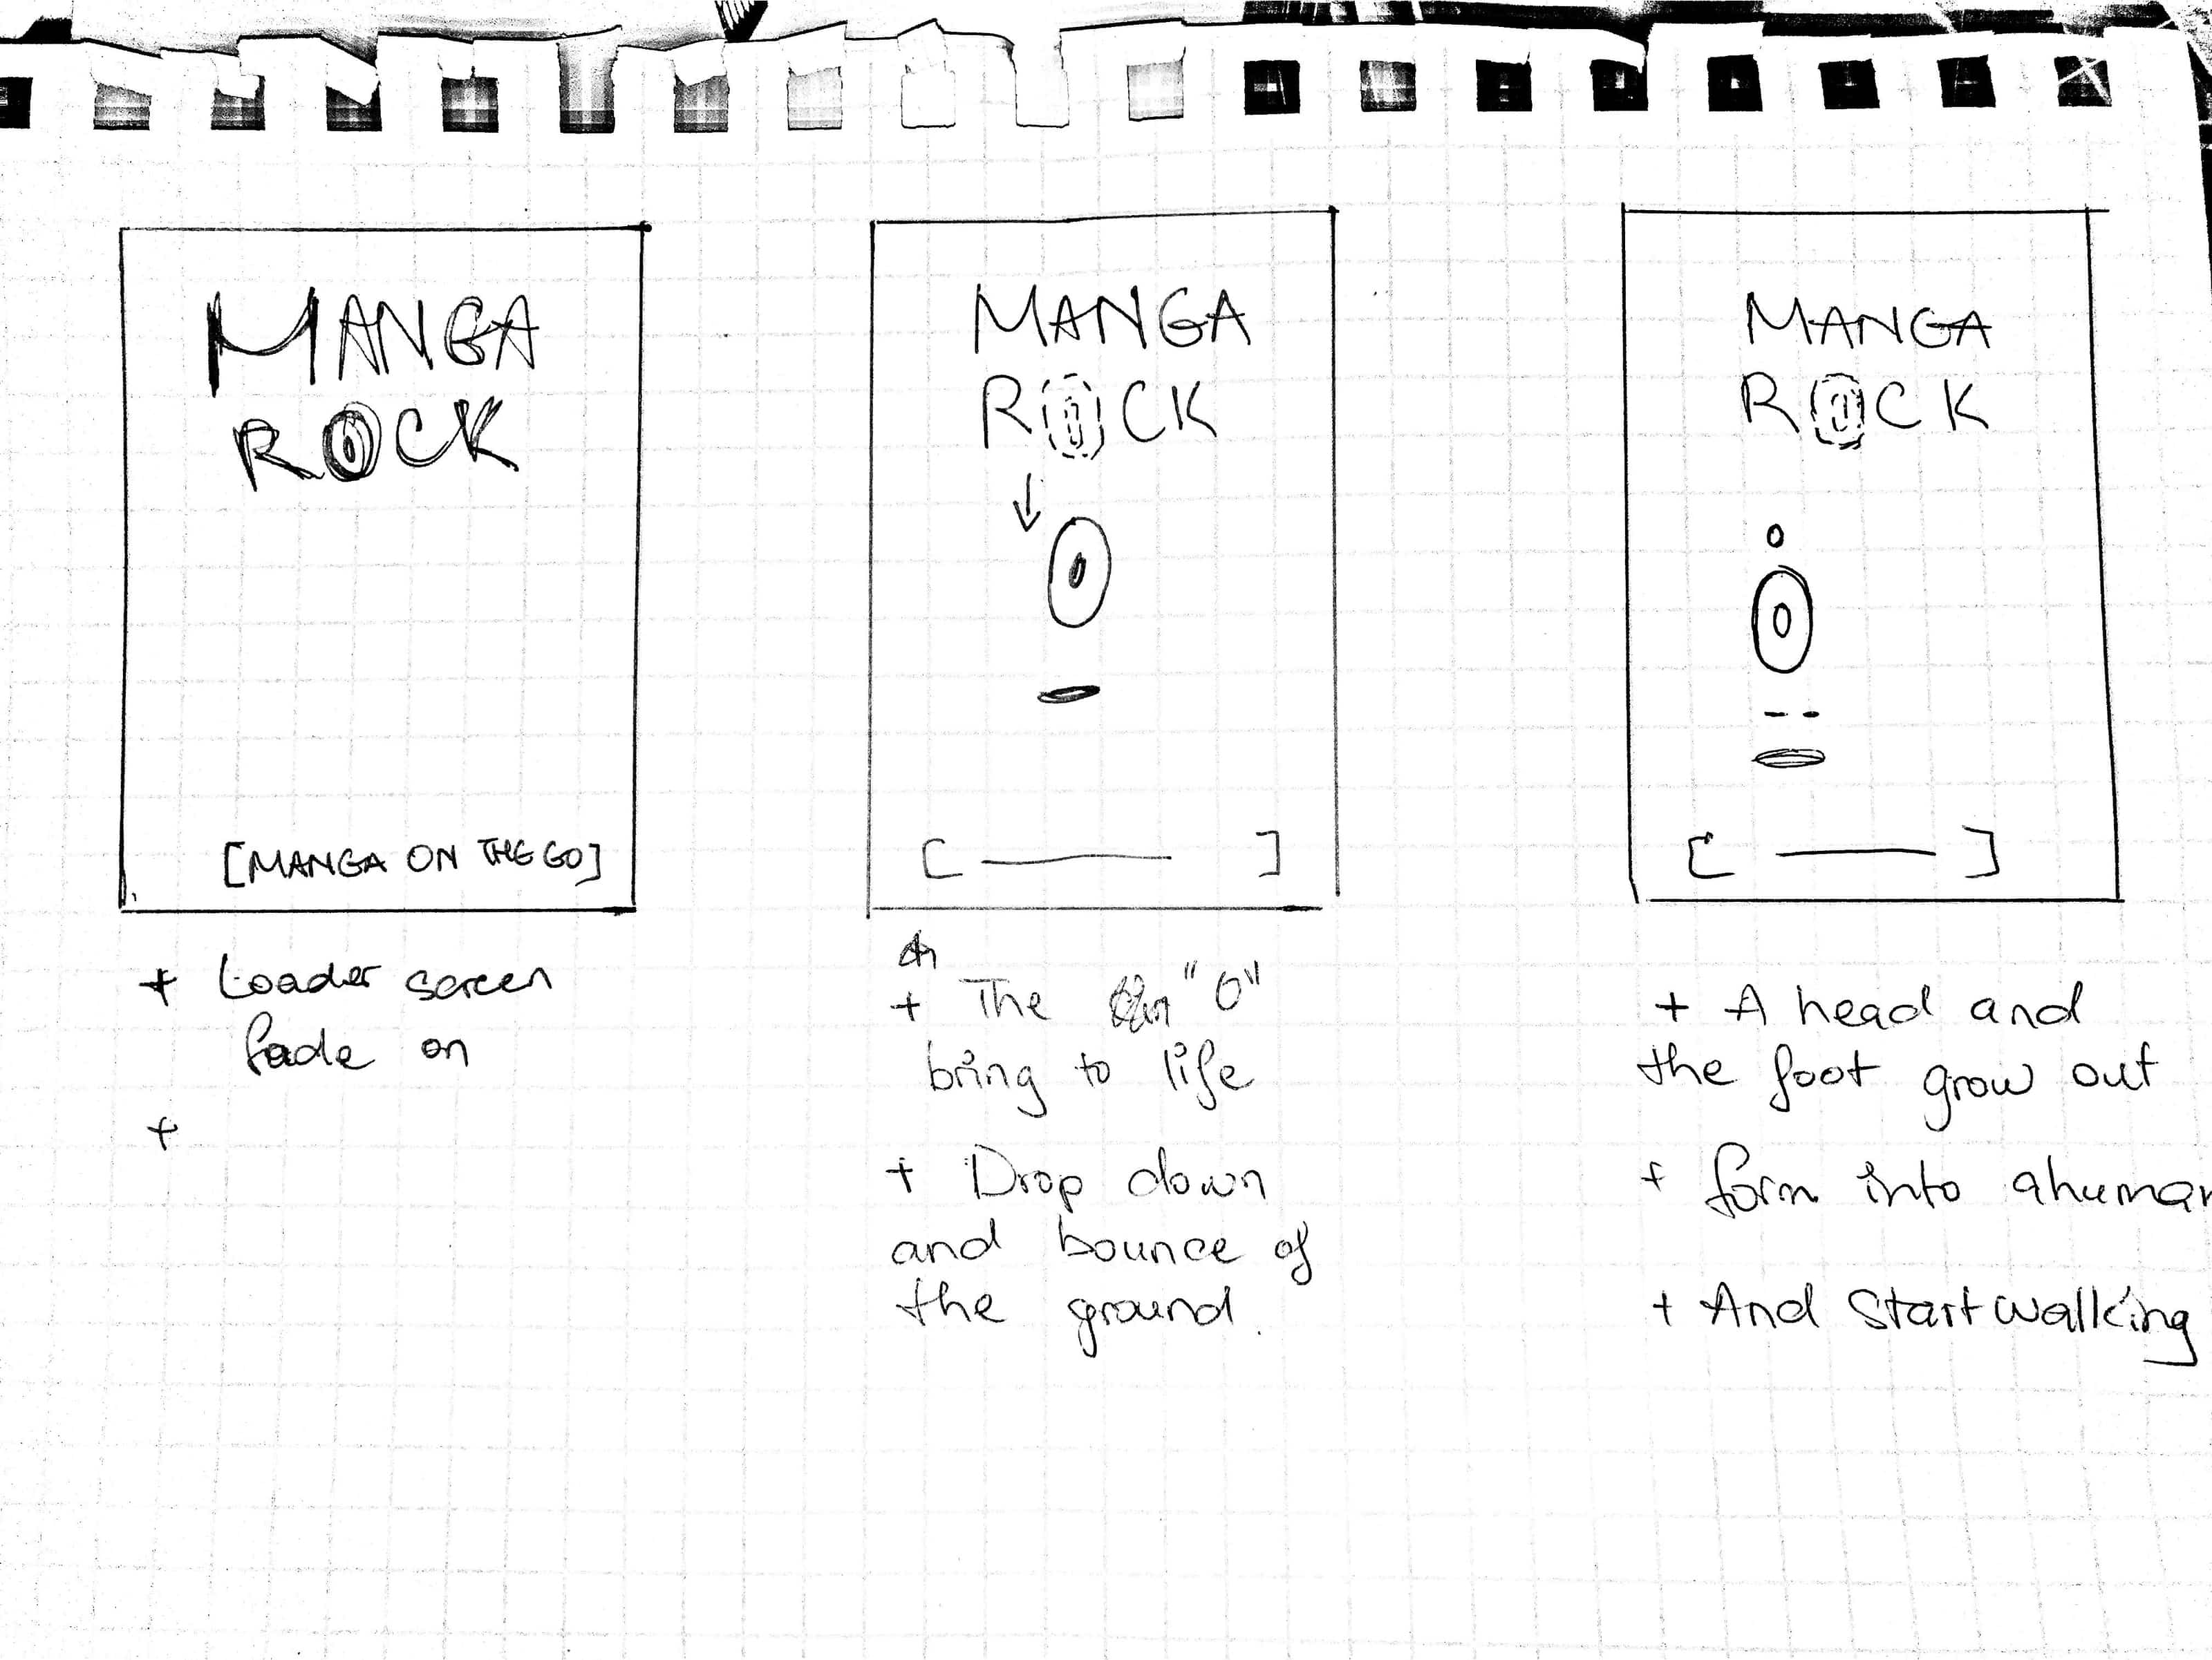 MANGA
ROCK
[MANGA ON THE GO]
+ Loader screen
fade on
+
MANGA
ROCK
[ ]
+ The "O"
bring to life
+ Drop down
and bounce of
the ground.
MANGA
ROCK
[ ]
+ A head and
the foot grow out
+ form into a human
+ And Start walking